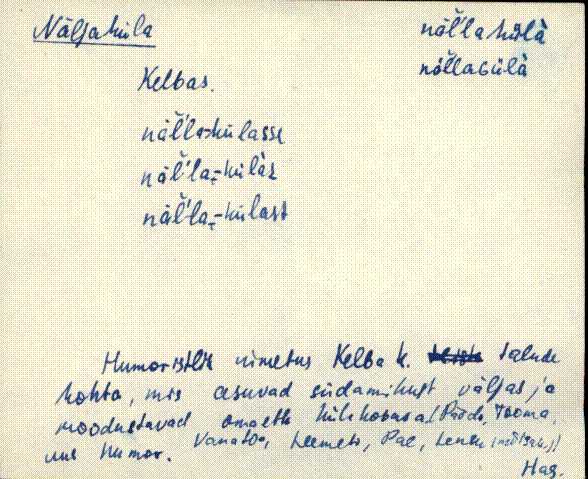 Näljaküla
näl̆'lakülà
nöllaGülà
Kelbas.
näl̆'la-külasse
näl̆'la-külàs
näl̆'la-külast
Humoristlik nimetus Kelba k. talude
kohta, mis asuvad südamikust väljas ja
moodustavad omaette külakobasa (Pärdi, Tooma,
Vanatoa, Leemeti, Pae,
uue humor.
Hag.